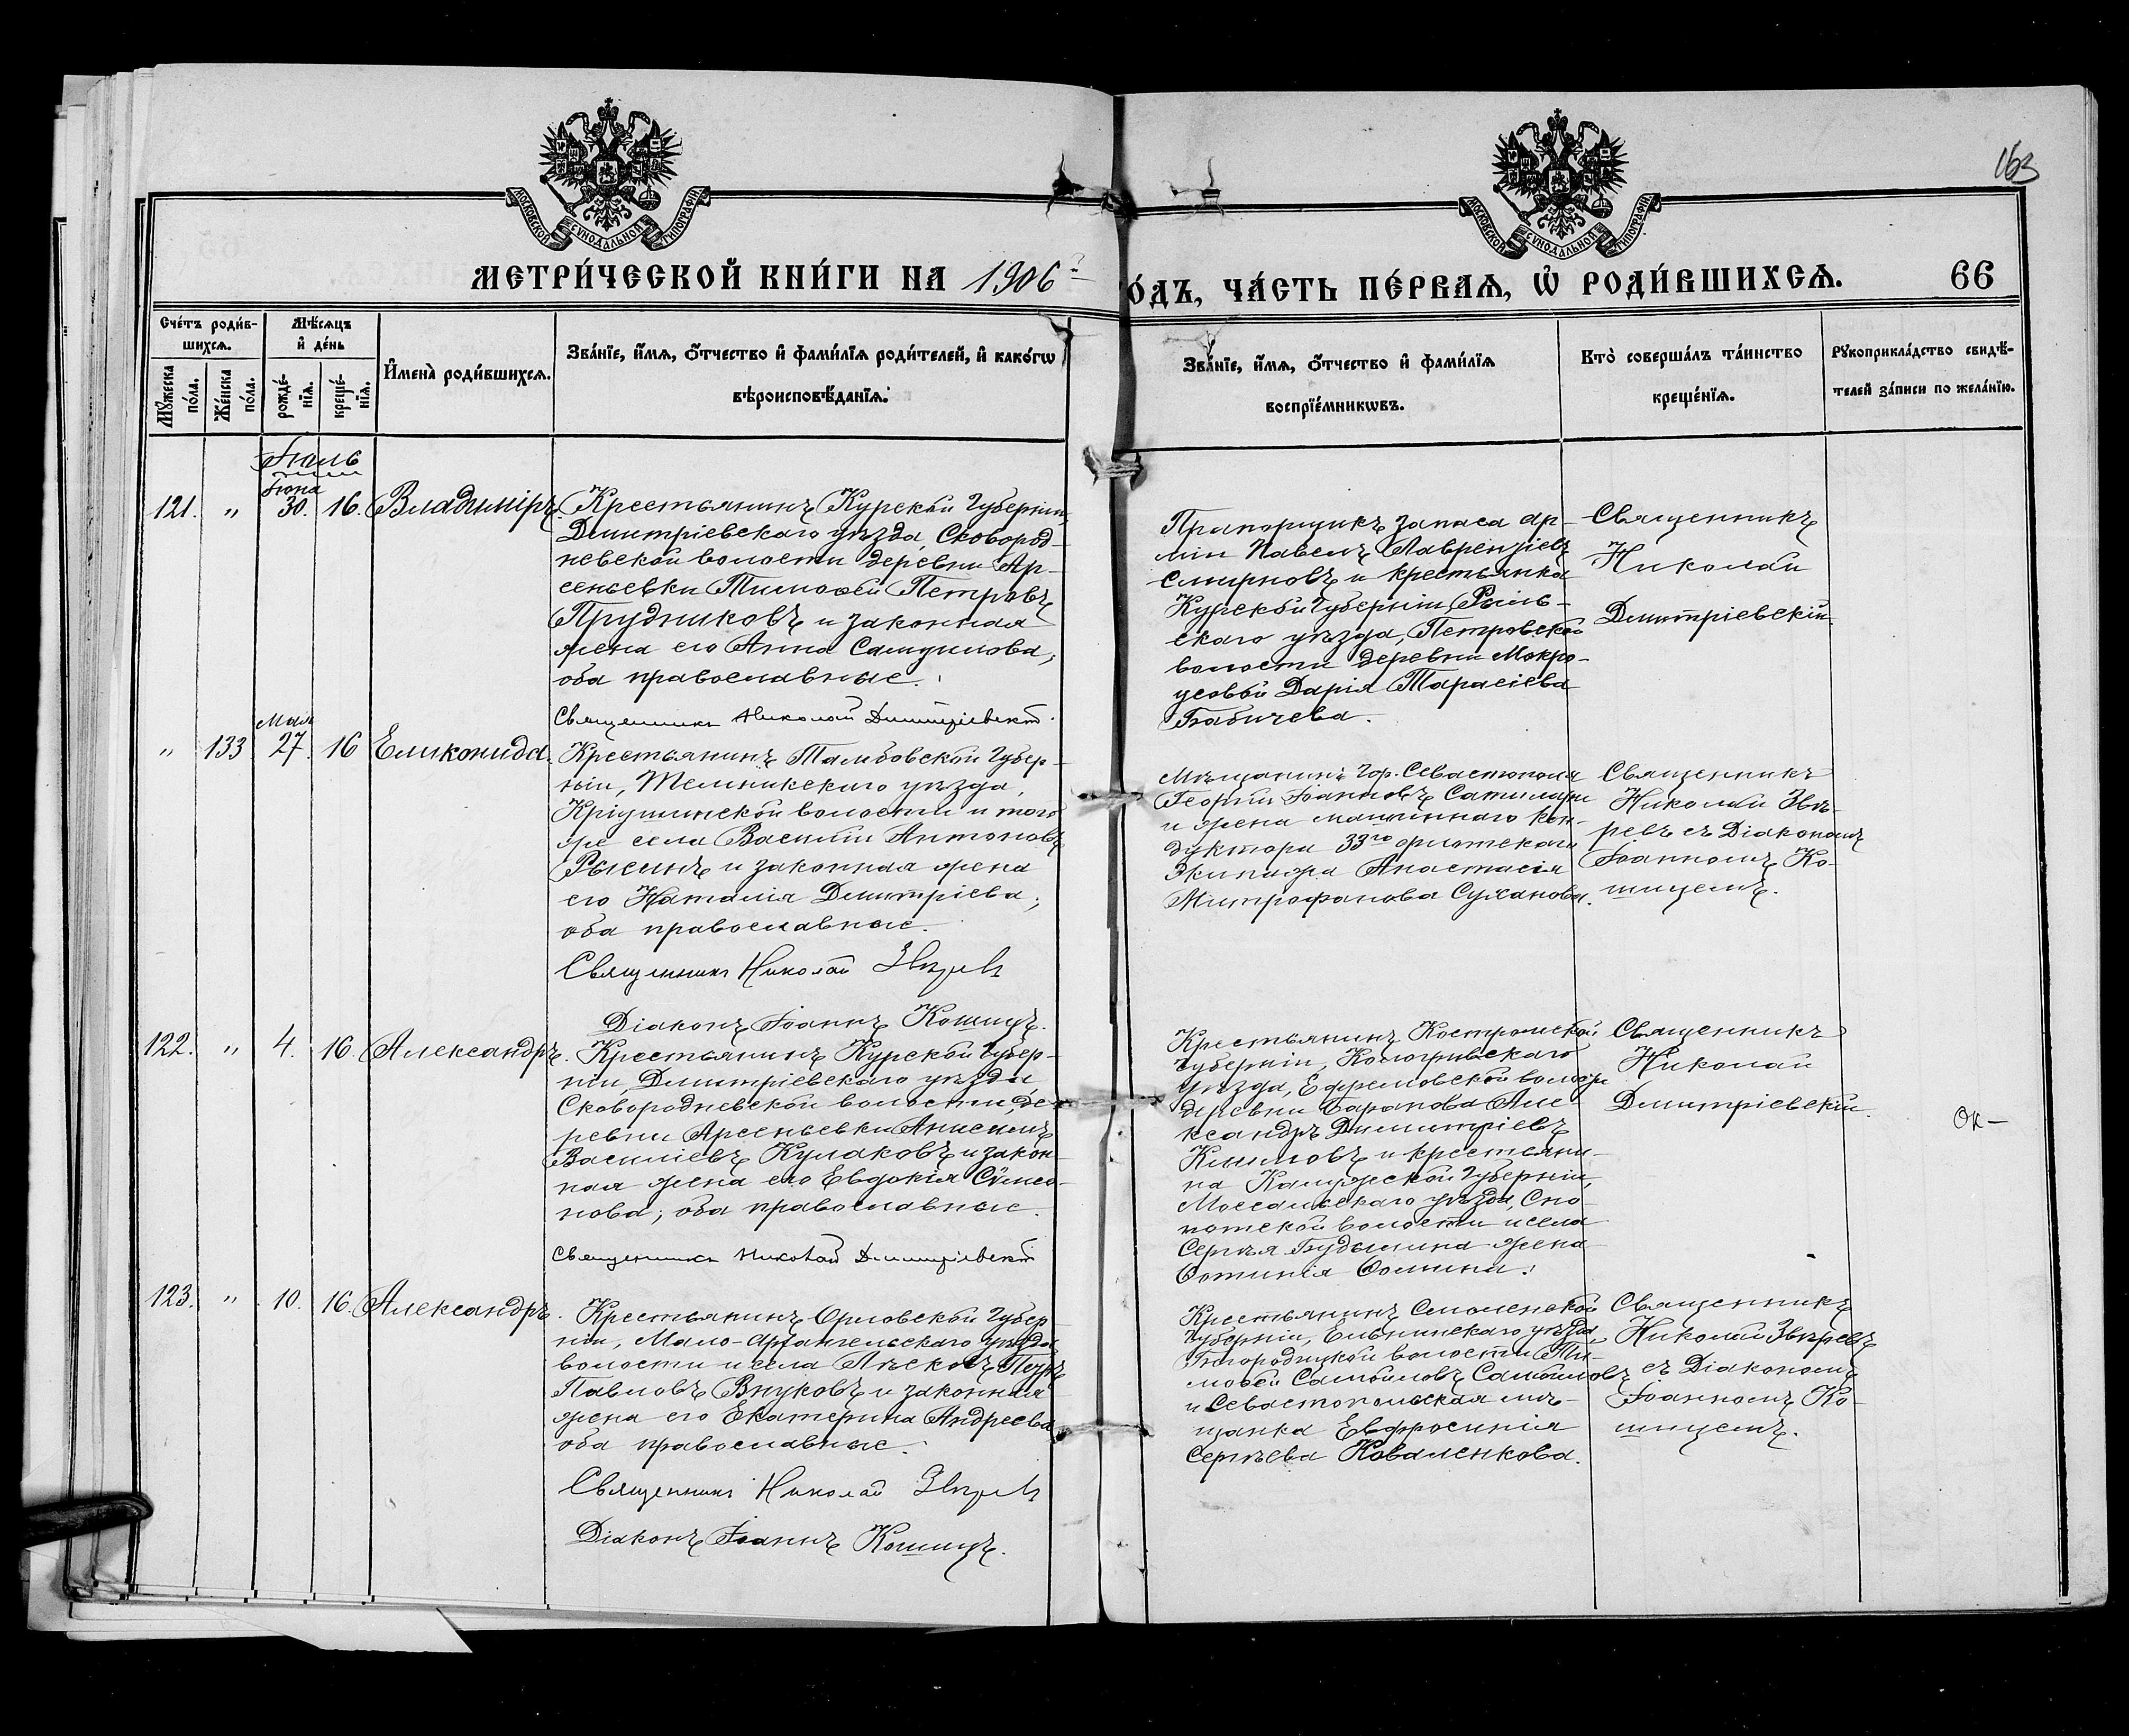 163
МОСКОВСКОЙ СУНОДАЛЬНОЙ ТИПОГРАФІИ
МОСКОВСКОЙ СУНОДАЛЬНОЙ ТИПОГРАФІИ
МЕТРИ́ЧЕСКОЙ КНИ́ГИ НА 1906
О́ДЪ, ЧА́СТЬ ПЕ́РВАѦ, Ѽ РОДИ́ВШИХСѦ. 66
Сче́тъ роди́в-
шихсѧ.
Мꙋ́жеска по́ла.
Же́нска по́ла.
Мѣ́сѧцъ
и҆ де́нь
рожде́-
нїѧ.
креще́-
нїѧ.
И҆мена̀ роди́вшихсѧ.
Зва́нїе, и҆́мѧ, ѻ҆́тчество и҆ фами́лїѧ роди́телей, и҆ како́гѡ
вѣроисповѣ́данїѧ.
Зва́нїе, и҆́мѧ, ѻ҆́тчество и҆ фами́лїѧ
воспрїе́мникѡвъ.
Кто̀ соверша́лъ та́инство
креще́нїѧ.
Рꙋкоприкла́дство свидѣ́-
телей за́писи по жела́нїю.
Іюль
Іюня
121. " 30. 16. Владиміръ.
Крестьянинъ Курской Губерніи,
Димитріевскаго уѣзда, Сковород-
невской волости деревни Ар-
сеньевки Тимоѳей Петровъ
Прудниковъ и законная
жена его Анна Самуилова;
оба православные.
Священникъ Николай Димитріевскій.
Прапорщикъ запаса ар-
міи Павелъ Лаврентіевъ
Смирновъ и крестьянка
Курской Губерніи, Рыль-
скаго уѣзда, Петровской
волости деревни Мокро-
усовой Дарія Тарасіева
Бабичева.
Священникъ
Николай
Димитріевскій
Мая
" 133 27. 16 Еликонида.
Крестьянинъ Тамбовской Губер-
ніи, Темниковскаго уѣзда,
Кріушинской волости и того
же села Василій Антоновъ
Рысинъ и законная жена
его Наталія Димитріева;
оба православные.
Священникъ Николай Звѣревъ
Діаконъ Іоаннъ Кошицъ.
Мѣщанинъ Гор. Севастополя
Георгій Іоанновъ
и жена машиннаго кон-
дуктора 33го флотскаго
Экипажа Анастасія
Митрофанова Суханова.
Священникъ
Николай Звѣ-
ревъ съ Діакономъ
Іоанномъ Ко-
шицемъ.
122. " 4. 16. Александръ.
Крестьянинъ Курской Губер-
ніи, Димитріевскаго уѣзда,
Сковородневской волости, де-
ревни Арсеньевки Анисимъ
Василіевъ Кулаковъ и закон-
ная жена его Евдокія Симео-
нова; оба православные.
Священникъ Николай Димитріевскій
Крестьянинъ Костромской
Губерніи, Кологривскаго
уѣзда, Ефремовской волости
деревни Баранова Але-
ксандръ Димитріевъ
Климовъ и крестьяни-
на Калужской Губерніи,
Мосальскаго уѣзда, Спо-
потской волости и села
Сергѣя Будылина жена
Фотинія Фомина.
Священникъ
Николай
Димитріевскій.
Ок—
123. " 10. 16. Александръ.
Крестьянинъ Орловской Губер-
ніи, Мало-Архангельскаго уѣзда,
волости и села Лѣсковъ Петръ
Павловъ Внуковъ и законная
жена его Екатерина Андреева
оба православные.
Священникъ Николай Звѣревъ
Діаконъ Іоаннъ Кошицъ.
Крестьянинъ Смоленской
Губерніи, Ельнинскаго уѣзда,
Богородицкой волости Ти-
моѳей Самойловъ Самойловъ
и Севастопольская мѣ-
щанка Евфросинія
Сергѣева Коваленкова.
Священникъ
Николай Звѣревъ
съ Діакономъ
Іоанномъ Ко-
шицемъ.